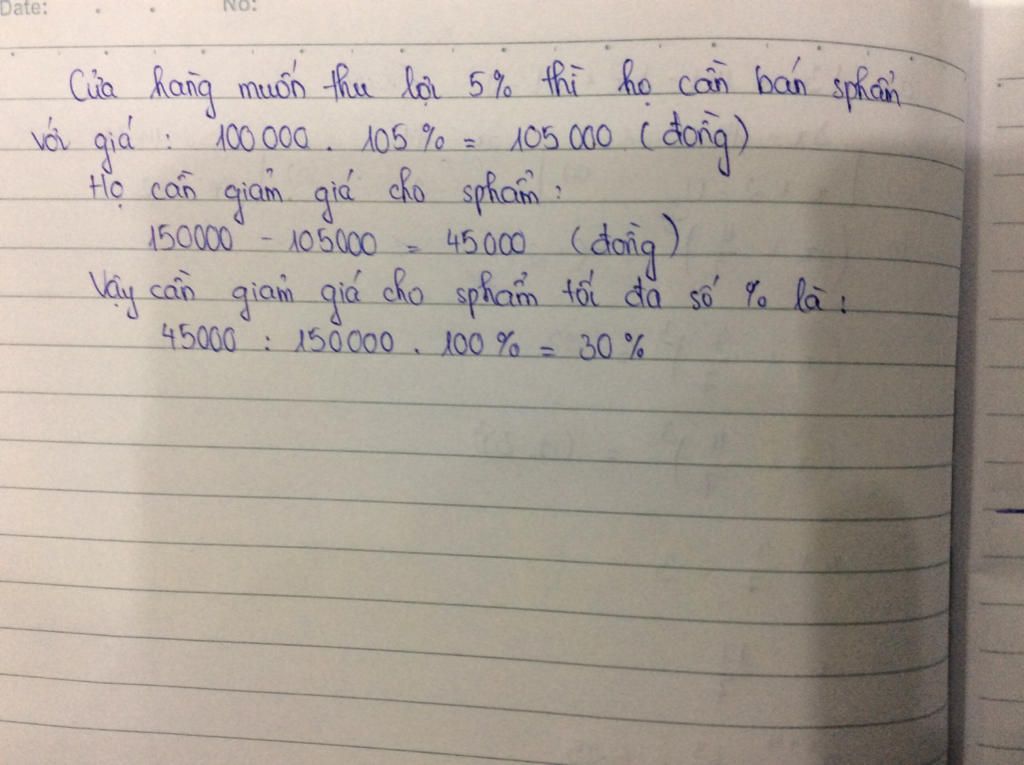 Date:
No:
Cửa hàng muốn thu lợi 5% thì họ cần bán sphẩm
với giá : 100 000 . 105 % = 105 000 ( đồng )
Họ cần giảm giá cho sphẩm :
150000 - 105000 = 45 000 ( đồng )
Vậy cần giảm giá cho sphẩm tối đa số % là :
45000 : 150000 . 100 % = 30 %